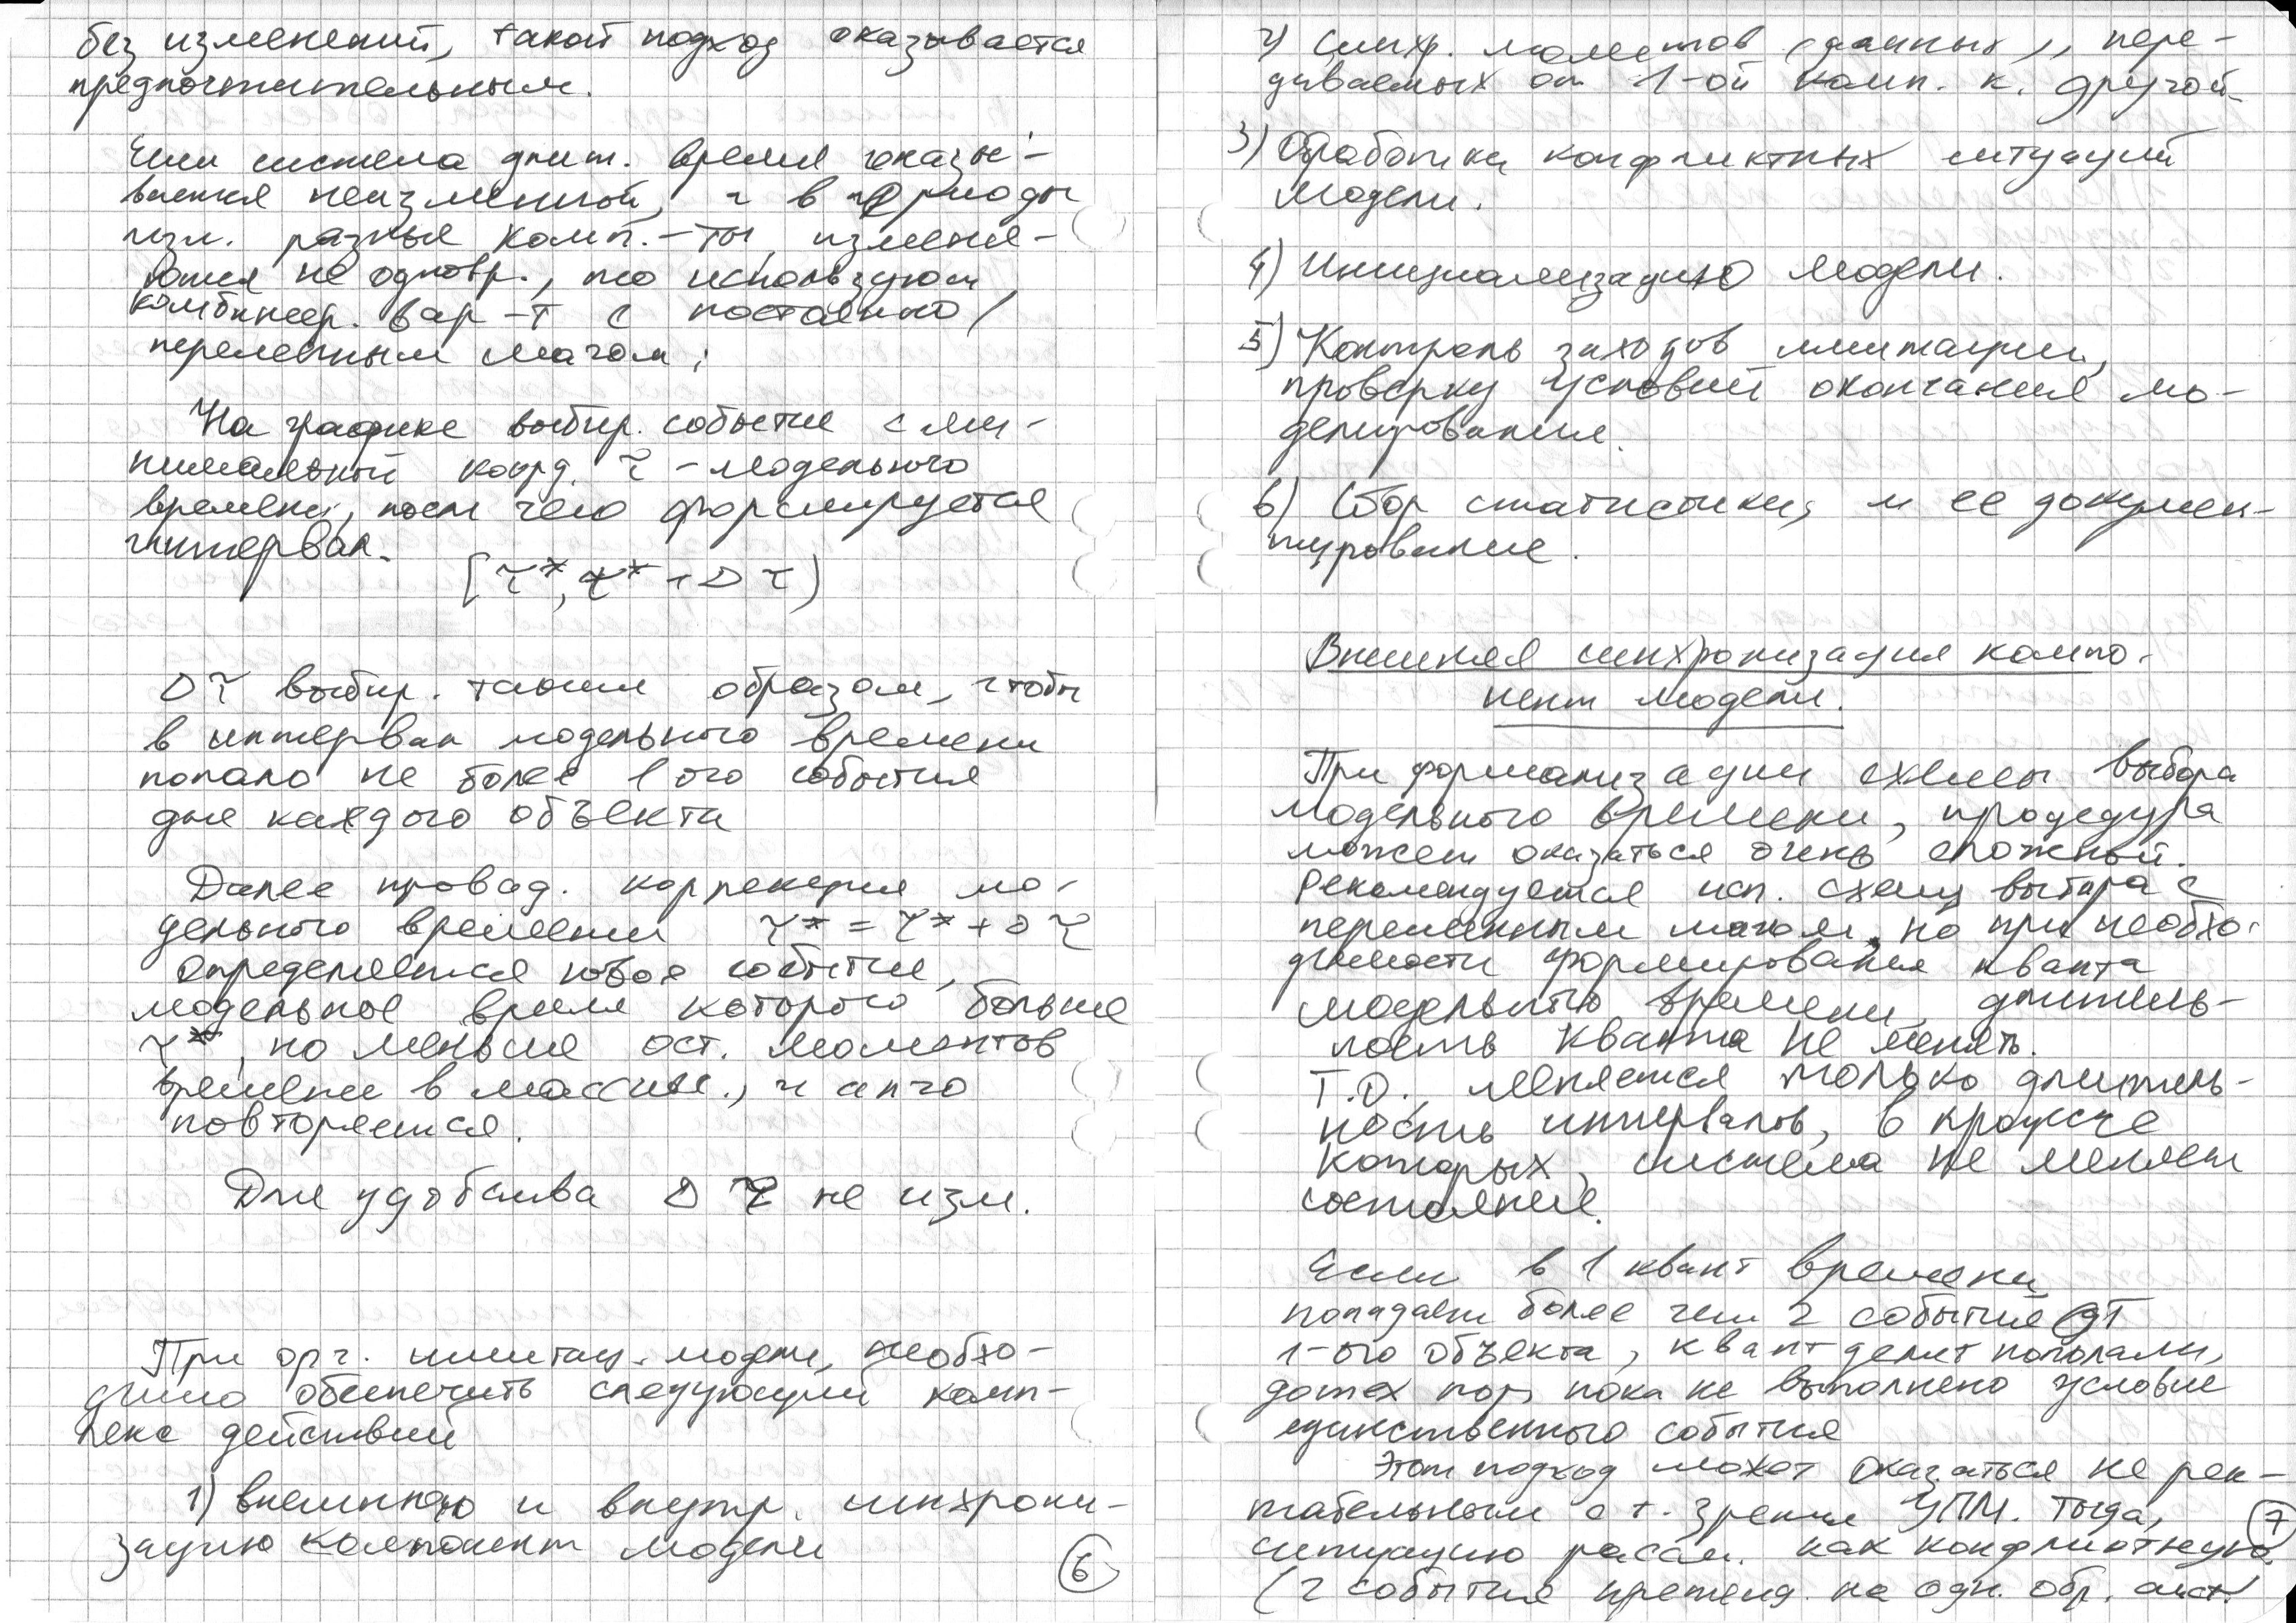 без изменений, такой подход оказывается
предпочтительным.
Если система длит. время оказы-
вается неизменной, а в периоды
изм. разные комп.-ты изменя-
ются не одновр., то используют
комбинир. вар-т с постоянно/
переменным шагом:
На графике выбир. событие с ми-
нимальной коорд. τ - модельного
времени, после чего формируется
интервал.
[τ*, τ* + Δτ)
Δτ выбир. таким образом, чтобы
в интервал модельного времени
попало не более 1ого события
для каждого объекта
Далее провод. коррекция мо-
дельного времени τ* = τ* + Δτ
Определяется новое событие,
модельное время которого больше
τ*, но меньше ост. моментов
времени в массиве, и алго
повторяется.
Для удобства Δτ не изм.
При орг. имитац. модели, необхо-
димо обеспечить следующий комп-
лекс действий
1) внешнюю и внутр. синхрони-
зацию компонент модели
6
2) Синхр. моментов (данных), пере-
даваемых от 1-ой комп. к. другой
3) Обработки конфликтных ситуаций
модели.
4) Инициализацию модели.
5) Контроль заходов имитации,
проверку условий окончания мо-
делирования.
6) Сбор статистики, и ее докумен-
тирование.
Внешняя синхронизация компо-
нент модели.
При формализации схемы выбора
модельного времени, процедура
может оказаться очень сложной.
Рекомендуется исп. схему выбора с
переменным шагом, но при необхо-
димости формирования кванта
модельного времени, длитель-
ность кванта не менять.
Т.О., меняется только длитель-
ность интервалов, в процессе
которых, система не меняет
состояние.
Если в 1 квант времени
попадает более чем 2 события от
1-ого объекта, квант делят пополам,
до тех пор, пока не выполнено условие
единственного события
Этот подход может оказаться не рен-
табельным с т. зрения УПМ. Тогда,
ситуацию рассм. как конфликтную
(2 события претенд. на одн. обр.
7